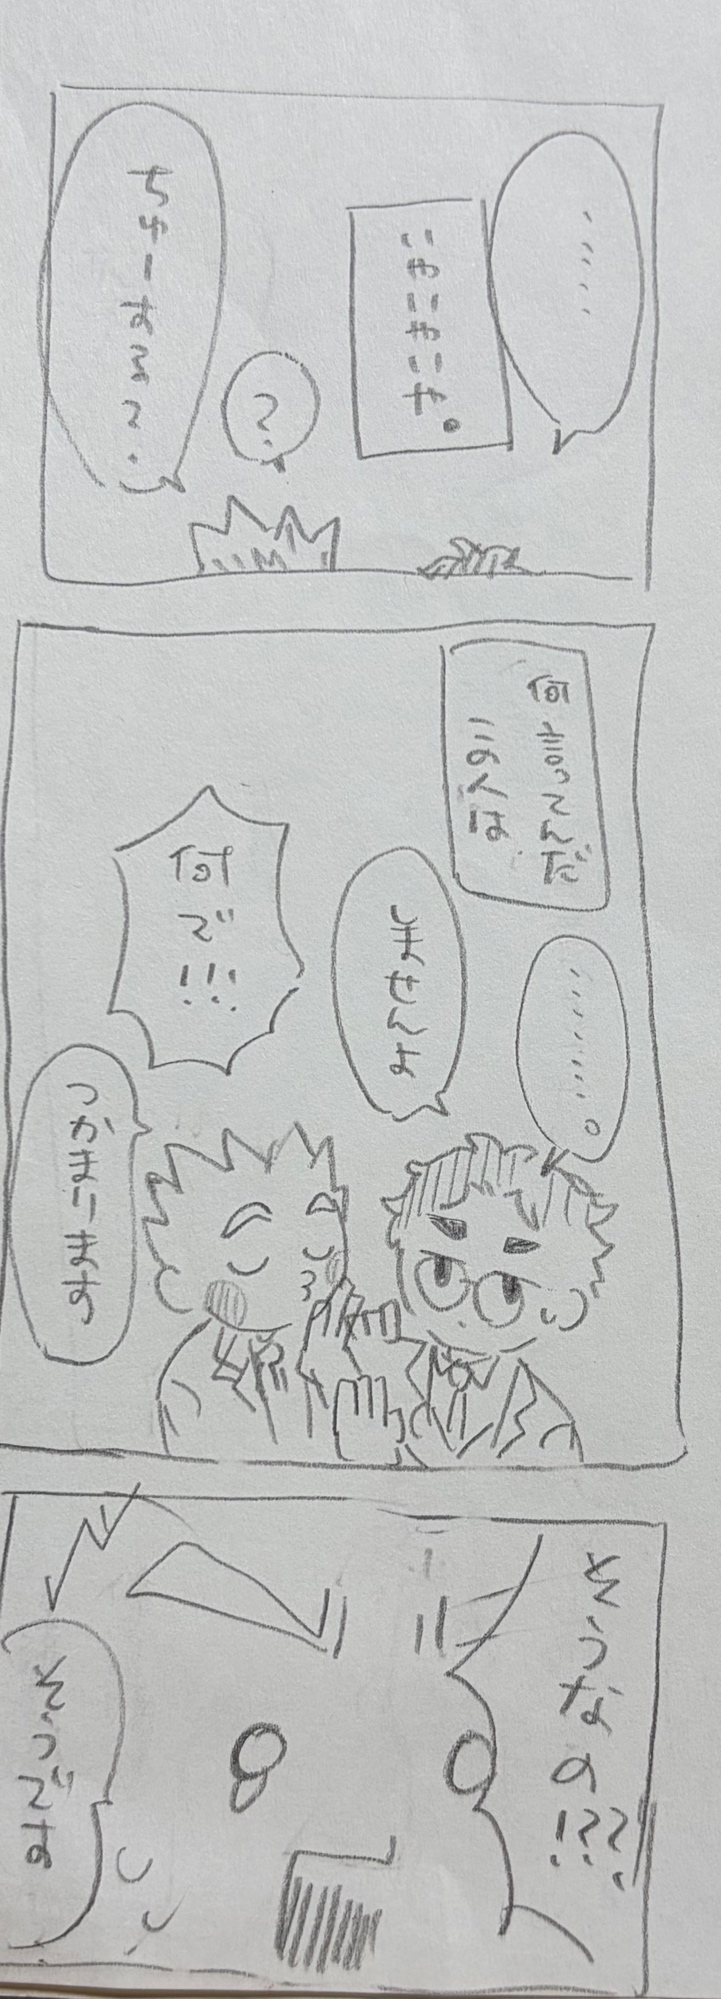 ‥‥
にやにやにや。
?
ちゅーする
何言ってんだ
この人は
‥‥‥。
しませんよ
何で!!!
つかまります
そうなの!??
そうです